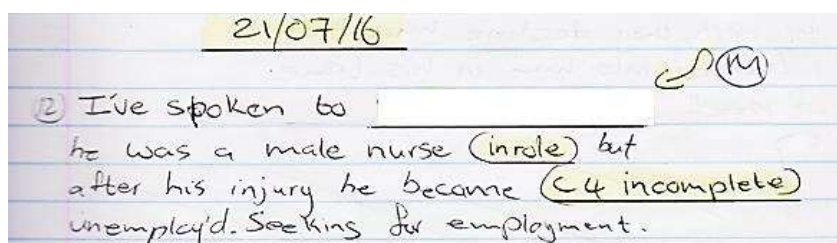 21/07/16
M
12 I've spoken to
he was a male nurse (inrole) but
after his injury he became (C4 incomplete)
unemploy'd. Seeking for employment.